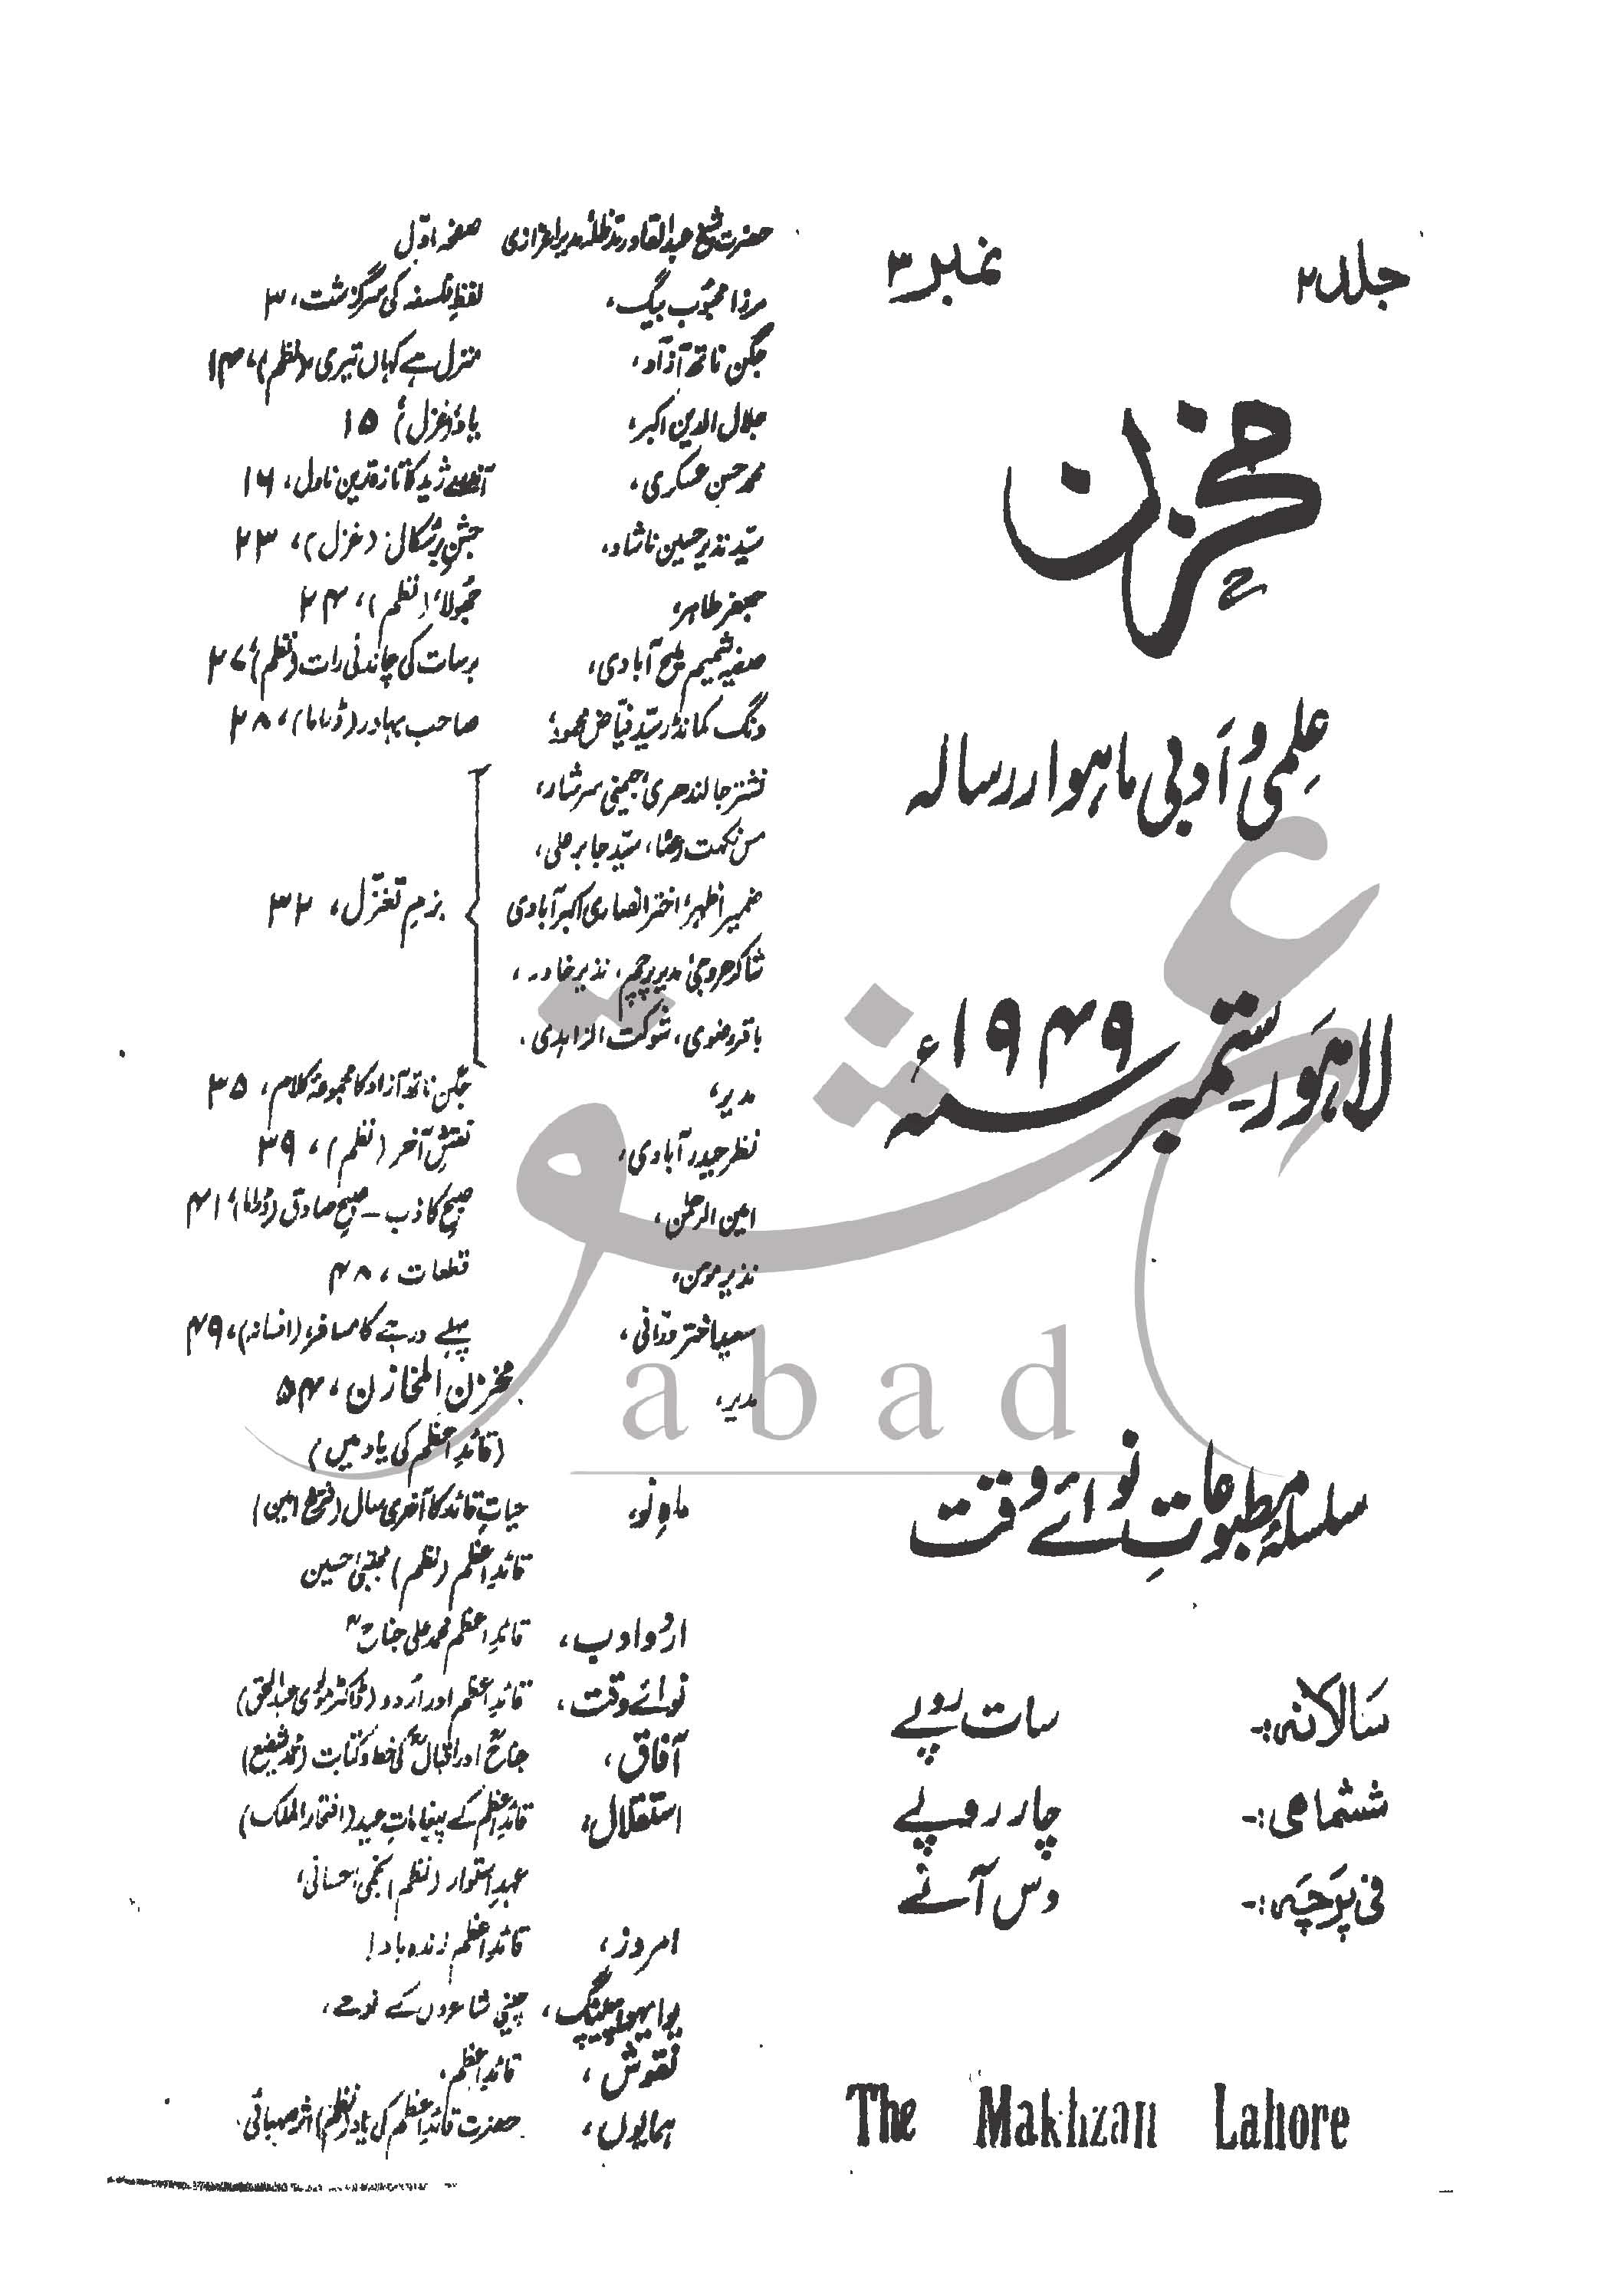 جلد ۲ نمبر ۳
مخزن
علمی و ادبی ماہوار رسالہ
لاہور ستمبر سنہ ۱۹۴۹ء
سلسلۂ مطبوعاتِ نوائے وقت
سالانہ:- سات روپے
ششماہی:- چار روپے
فی پرچہ:- دس آنے
The Makhzan Lahore
حضرت شیخ عبدالقادر مدظلہٗ مدیر اعزازی صفحہ اوّل
مرزا محبوب بیگ، لفظِ فلسفہ کی سرگزشت، ۳
جگن ناتھ آزاد، منزل ہے کہاں تیری (نظم)، ۱۴
جلال الدین اکبر، یاد (غزل)، ۱۵
محمد حسن عسکری، آندرے ژید کا تازہ ترین ناول، ۱۶
سیّد نذیر حسین ناشاد، جشنِ برشگال (غزل)، ۲۳
جعفر طاہر، جھولا، (نظم)، ۲۴
صفیہ شمیم ملیح آبادی، برسات کی چاندنی رات (نظم)، ۲۷
ونگ کمانڈر سیّد فیّاض محمود، صاحب بہادر (ڈراما)، ۲۸
نشتر جالندھری، جیمنی سرشار،
مس نکہت رعنا، سیّد جابر علی،
ضمیر اظہر، اختر انصاری اکبر آبادی
شاکر عروجی، مدیر پرچم، نذیر خاور،
باقر رضوی، شوکت الزاہدی.
بزمِ تغزّل، ۳۲
مدیر، جگن ناتھ آزاد کا مجموعۂ کلام، ۳۵
نظر حیدر آبادی، نقشِ آخر (نظم)، ۳۹
امین الرحمٰن، صبحِ کاذب – صبحِ صادق (ڈراما)، ۴۱
نذیر مومن، قطعات، ۴۸
سعید اختر درّانی، پہلے درجے کا مسافر، (افسانہ)، ۴۹
مدیر، مخزن المخازن، ۵۴
(قائدِ اعظم کی یاد میں)
ماہِ نو، حیاتِ قائد کا آخری سال (فرخ امین)
قائدِ اعظم (نظم) مجتبیٰ حسین
اردو ادب، قائدِ اعظم محمد علی جناحؒ
نوائے وقت، قائدِ اعظم اور اُردو (ڈاکٹر مولوی عبدالحق)
آفاق، جناحؒ اور اقبالؒ کی خط و کتابت (محمد شفیع)
استقلال، قائدِ اعظم کے پیغاماتِ عید (افتخار الملک)
عہدِ استوار (نظم) نجمی احسانی،
امروز، قائدِ اعظم زندہ باد!
چینی شاعروں کے نوحے،
نقوش، قائدِ اعظم.
ہمایوں، حضرت قائدِ اعظم کی یاد (نظم) اثر صہبائی.
عشق
abad